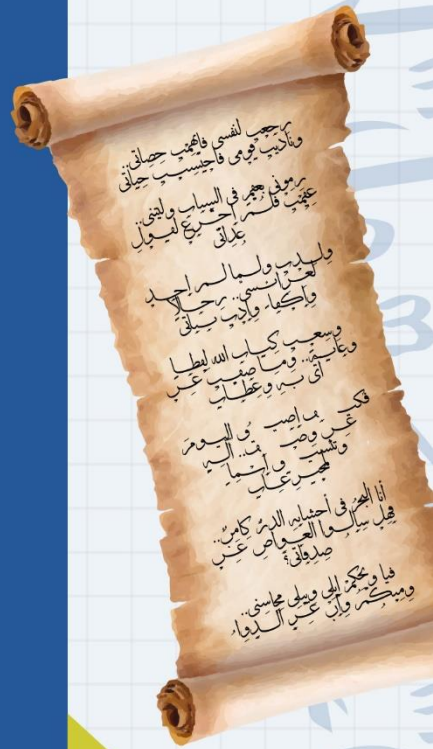 رجعت لنفسي فاتهمت حصاتي..
وناديت قومي فاحتسبت حياتي
رموني بعقم في الشباب وليتني..
عقمت فلم أجزع لقول
عداتي
ولدت ولما لم أجد
لعرائسي.. رجالا
وأكفاء وأدت بناتي
وسعت كتاب الله لفظا
وغاية.. وما ضقت عن
آي به وعظات
فكيف أضيق اليوم
عن وصف.. آلة
وتنسيق أسماء
لمخترعات
أنا البحر في أحشائه الدر كامن..
فهل سألوا الغواص عن
صدفاتي؟
فيا ويحكم أبلى وتبلى محاسني..
ومنكم وإن عز الدواء